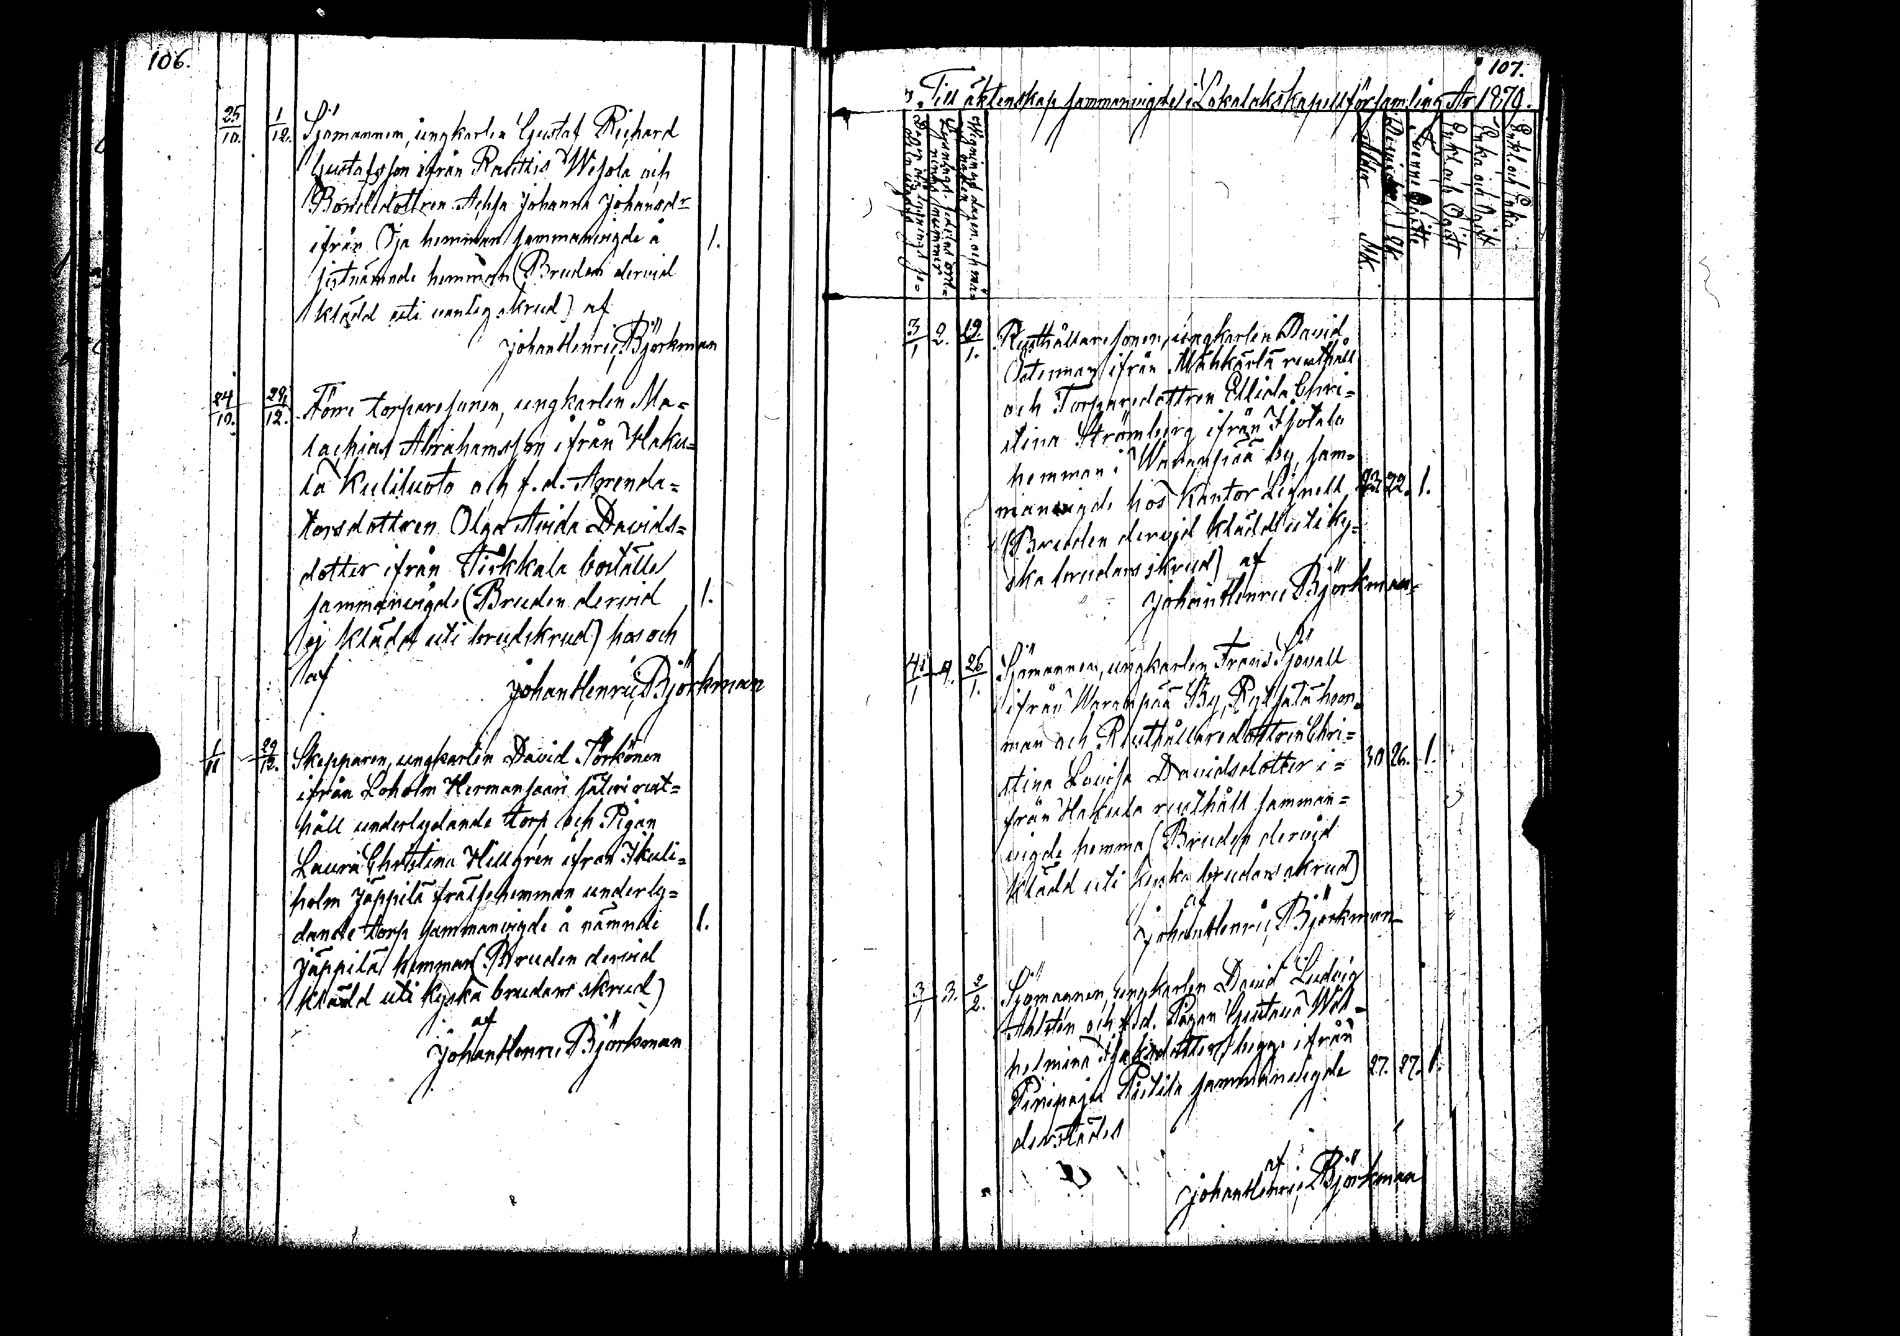 106.
25/10. 1/12. Sjömannen, ungkarlen Gustaf Richard
Gustafsson ifrån Rasittis Wesola och
Bondedottren Achsa Johanna Johansdr
ifrån Öja hemman sammanvigde å
sistnämnde hemman (Bruden dervid 1.
klädd uti vanlig skrud) af
Johan Henric Björkman
24/10. 29/12. Förre torparesonen, ungkarlen Ma=
lachias Abrahamsson ifrån Haku=
la Kulisuoto och f.d. Arrenda=
torsdottren Olga Avida Davids=
dotter ifrån Tiskkala boställe
sammanvigde (Bruden dervid 1.
ej klädd uti brudskrud) hos och
af
Johan Henric Björkman
1/11 29/12. Skepparen, ungkarlen David Törkönen
ifrån Loholm Hermansaari säteri rust=
håll underlydande torp och Pigan
Laura Christina Hillgrén ifrån
holm Jäppilä frälsehemman underly=
dande torp sammanvigde å nämnde 1.
Jäppilä hemman (Bruden dervid
klädd uti kyska brudars skrud)
af
Johan Henric Björkman
107.
Till äktenskap sammanvigde i Lokalaks kapellförsamling År 1879.
Wigningsdagen och må=
naden
Ålder
M.K.
Enkl. och Ogift
Enka och Ogift
Enkl. och Enka
3/1 2. 19/1. Rusthållaresonen, ungkarlen David
Österman ifrån Mähkärlä rusthåll
och Torparedottren Ellida Chri=
stina Strömberg ifrån Isotalo
hemman i Waranpää by, sam=
manvigde hos Kantor Lignell 23. 22. 1.
(Bruden dervid klädd uti ky=
ska brudars skrud) af
Johan Henric Björkman
4/1 4. 26/1. Sjömannen, ungkarlen Frans Sjövall
ifrån Waranpää By, Rytsälä hem=
man och Rusthållaredottren Chri=
stina Lovisa Davidsdotter i= 30 26. 1.
från Hakula rusthåll samman=
vigde hemma (Bruden dervid
klädd uti kyska brudars skrud)
af
Johan Henric Björkman
3/1 3. 2/2. Sjömannen, ungkarlen David Ludvig
Ahlstén och f.d. Pigan Gustava Wil=
helmina Isaksdotter begge ifrån
Pinipaju Pietila sammanvigde 27. 27. 1.
derstädes
af
Johan Henric Björkman